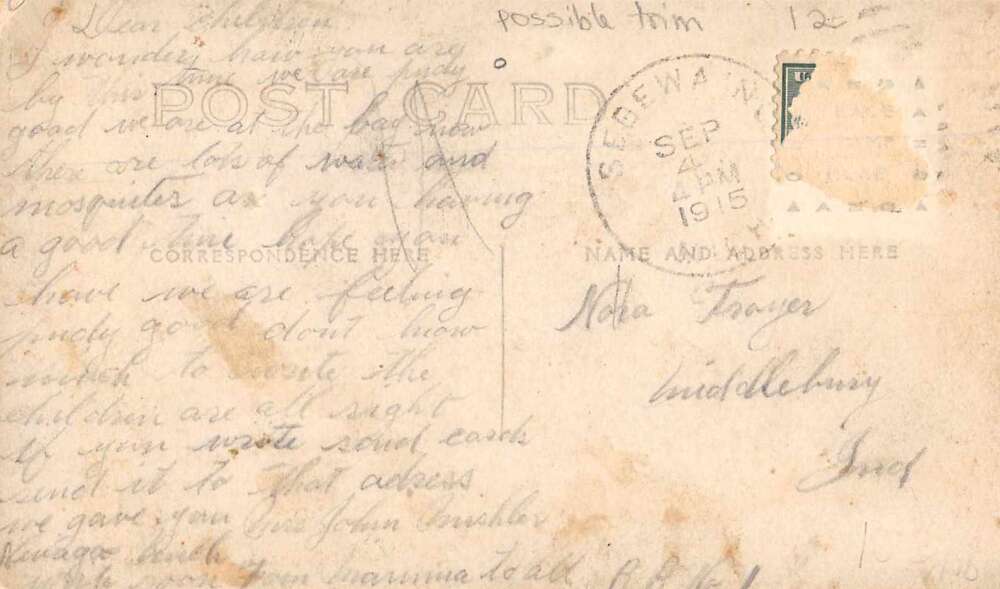 possible trim 12-
Dear Children
I wonder how you are
by this time we are pudy
good we are at the bay now
there are lots of water and
mosquiters are you having
a good time hope you
have we are feeling
pudy good dont know
much to wrote the
children are all right
if you wrote some cards
send it to that adress
we gave you Mrs John Mishler
Newago Mich
soon from mamma to all
POST CARD
CORRESPONDENCE HERE
NAME AND ADDRESS HERE
SEP
4
4 PM
1915
Nora Troyer
Middlebury
Ind